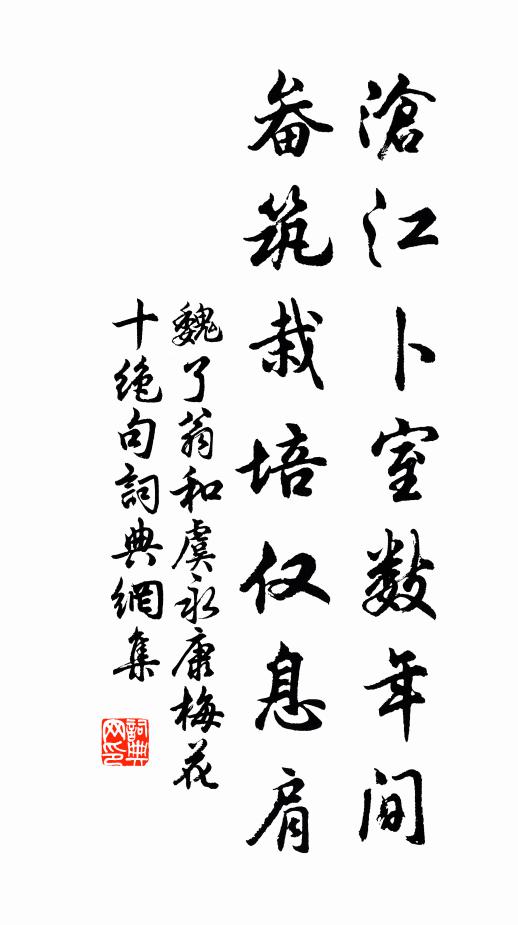 滄江卜室数年间
畚筑栽培仅息肩
魏了翁和虞永康梅花
十绝句詞典網集
詞典
网印